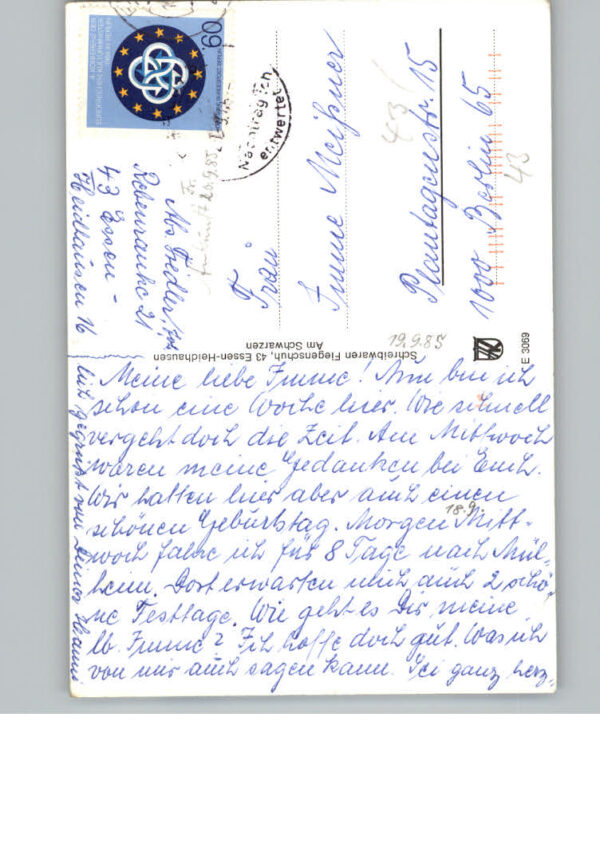 Meine liebe Imme! Nun bin ich
schon eine Woche hier. Wie schnell
vergeht doch die Zeit. Am Mittwoch
waren meine Gedanken bei Euch.
Wir hatten hier aber auch einen
schönen Geburtstag. Morgen Mitt-
18.9.
woch fahre ich für 8 Tage nach Mül-
heim. Dort erwarten mich auch 2 schö-
ne Festtage. Wie geht es Dir meine
lb. Imme? Ich hoffe doch gut. Was ich
von mir auch sagen kann. Sei ganz herz-
lich gegrüßt von Deiner Hanni
Schreibwaren Fiegenschuh, 43 Essen-Heidhausen
Am Schwarzen
E 3069
19.9.85
Abs. Fiedler,
21
43 Essen-
Heidhausen 16
Ankunft 20.9.85
Frau
Imme Meißner
Plantagenstr. 15
1000 Berlin 65
43
43
60
Nachträglich
entwertet